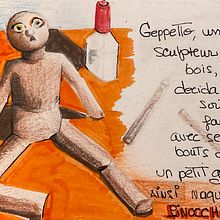 Geppetto, un
sculpteur
bois,
décida
fa
avec se
bouts
un petit ga
AINSI NAQU
PINOCCH